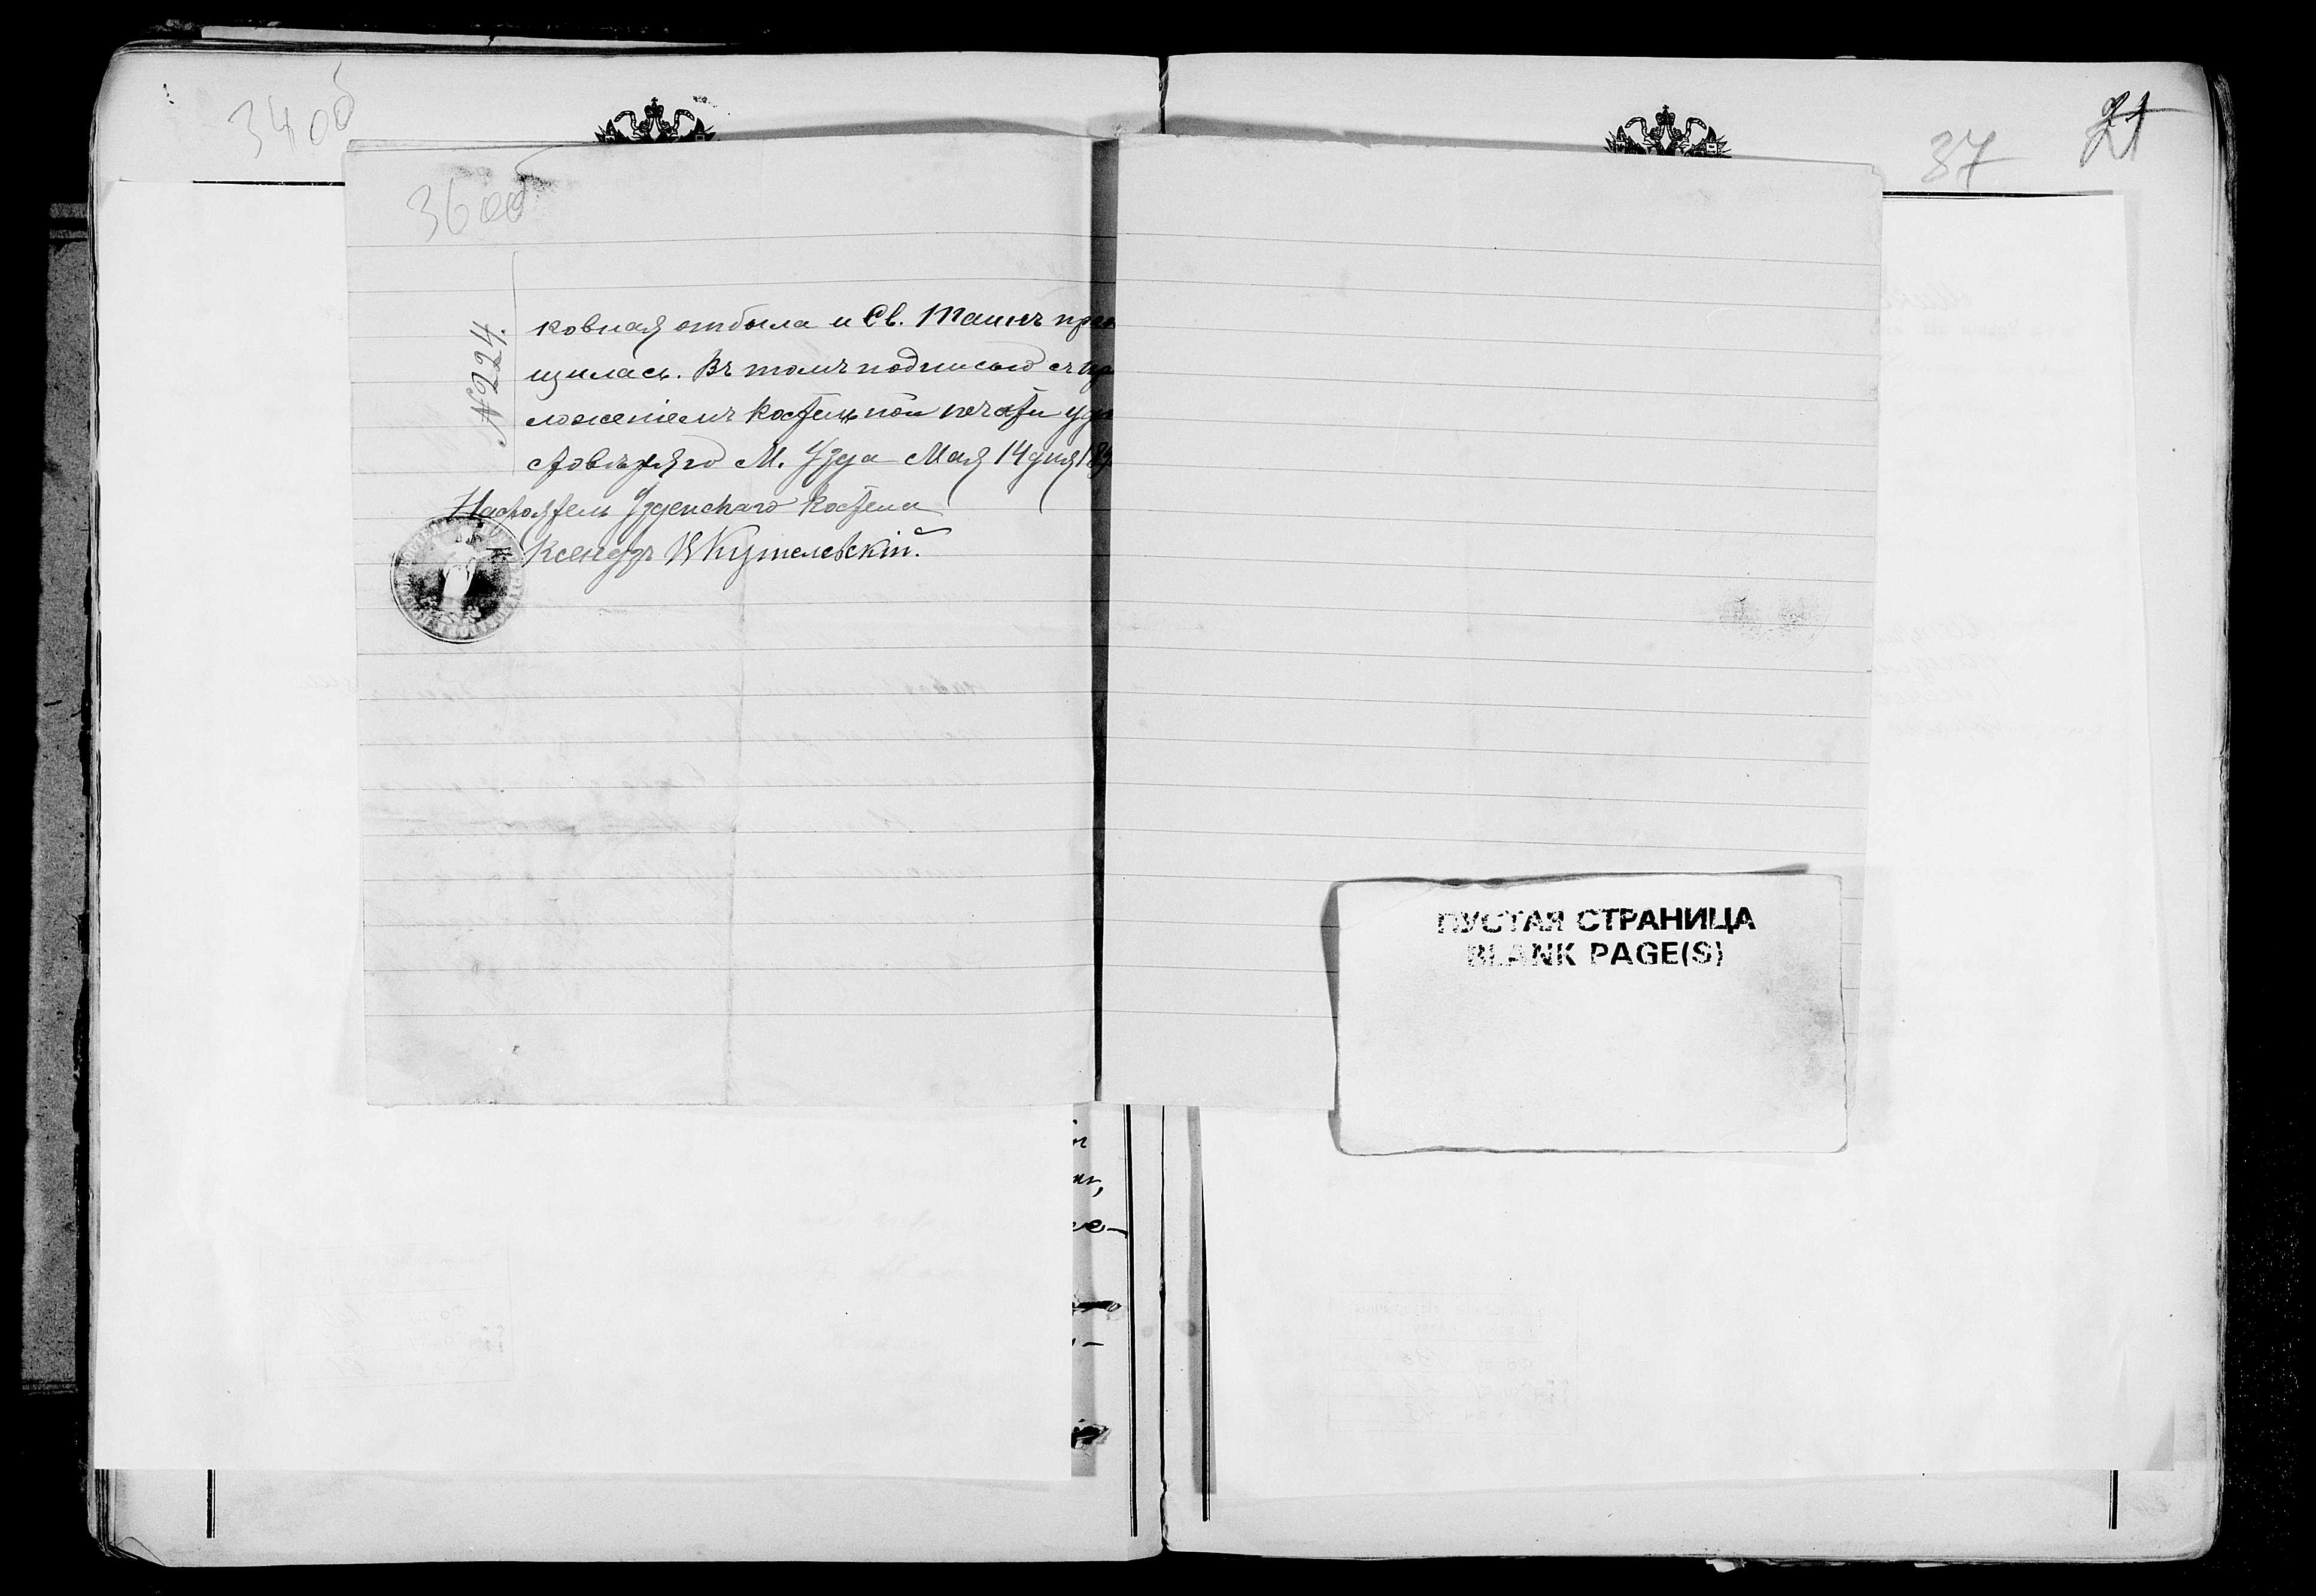 34об
36об
№ 224.
ковная отбыла и Св. Таинъ прео
щилась. Въ томъ подписью съ при
ложеніемъ костельной печати удо
стовѣряю М. Узда Мая 14 дня 189
Настоятель Узденскаго Костела
Ксендзъ Кутелевскій.
37
21
ПУСТАЯ СТРАНИЦА
BLANK PAGE(S)